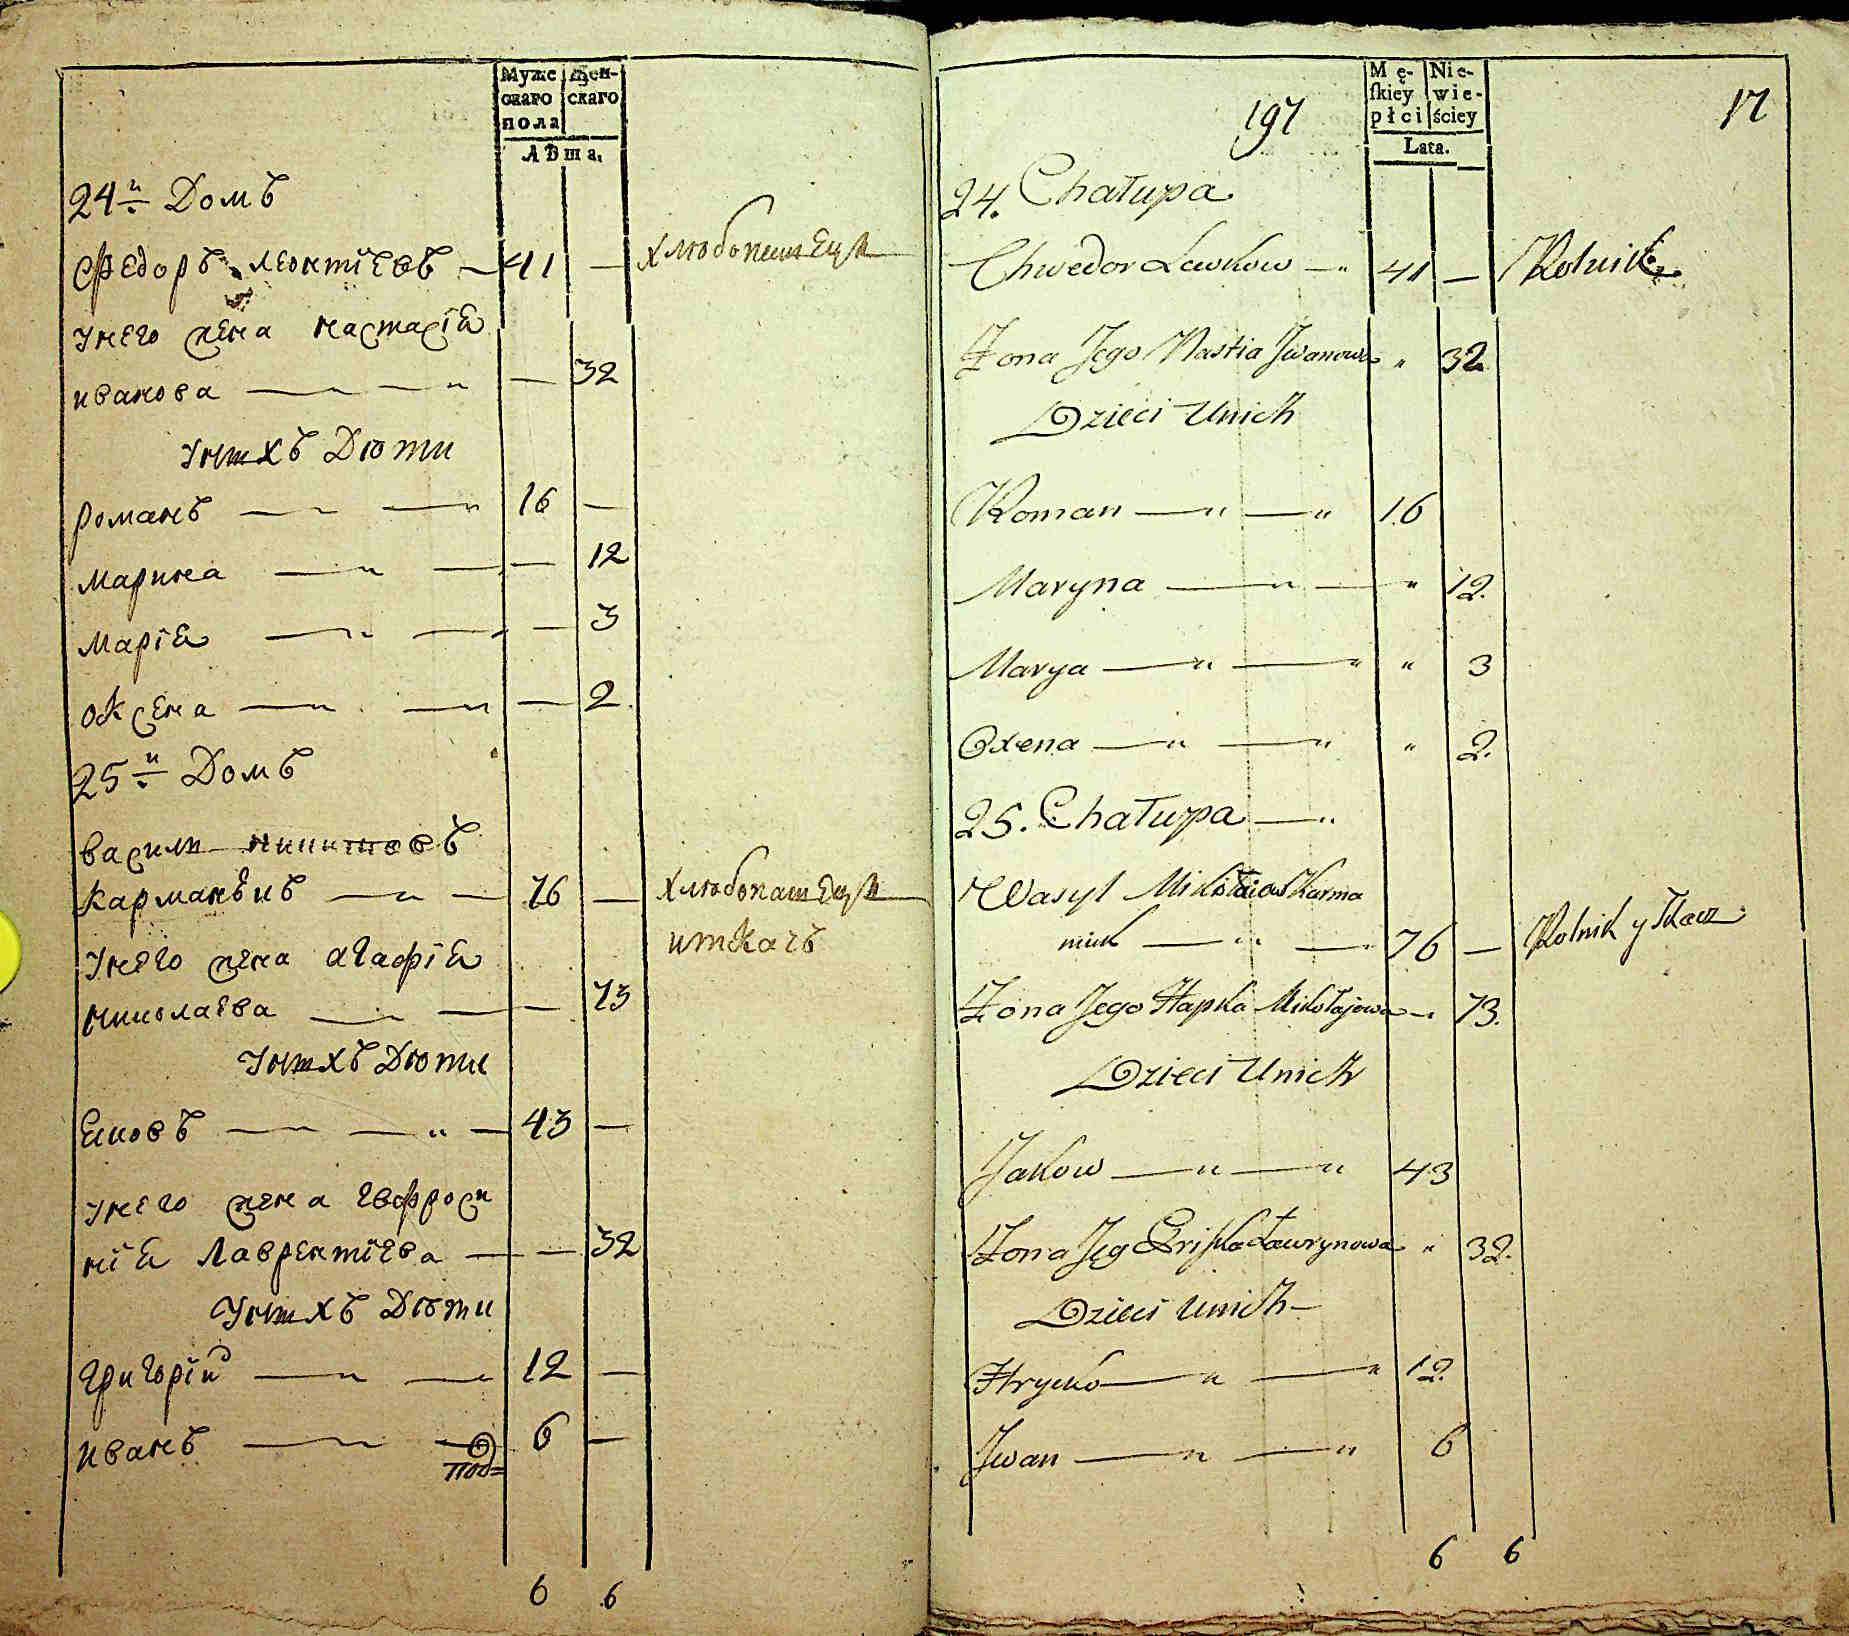 Муже
скаго
пола
Жен-
скаго
Лѣта.
24й Домъ
Федоръ Леонтіевъ — 41 — хлѣбопашецъ
Унего жена настасія
иванова — — 32
Унихъ Дѣти
романъ — — 16 —
марина — — — 12
марія — — — 3
оксена — — — 2
25й Домъ
васили никитовъ
карманѣнъ — — 76 — хлѣбопашецъ
Унего жена агафія иткачъ
николаева — — — 73
Унихъ Дѣти
яковъ — — 43 —
Унего жена евфроси
нія лаврентіева — — 32
Унихъ Дѣти
григорій — — 12 —
иванъ — — 6 —
под=
6 6
197
17
Mę-
ſkiey
płci
Nie-
wie-
ściey
Lata.
24. Chałupa
Chwedor Lewkow — 41 — Rolnik
Żona Jego Nastia Jwanowa " 32
Dzieci Unich
Roman — " — " 16
Maryna — " — " 12.
Marya — " — " " 3
Oxena — " — " " 2.
25. Chałupa — "
Wasyl Mikołaiow Karma
niuk — " — 76 — Rolnik y Tkacz
Żona Jego Hapka Mikołajowa — 73.
Dzieci Unich
Jakow — " — " 43
Żona Jeg Pryſka Ławrynowa " 32.
Dzieci Unich —
Hryćko — " — " 12.
Jwan — " — " 6
6 6